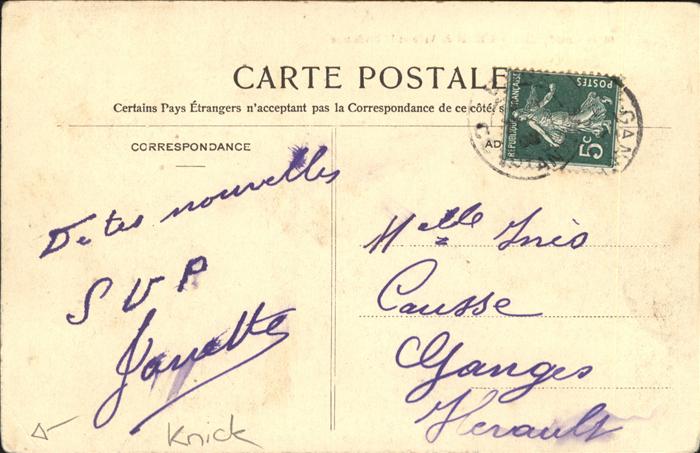 CARTE POSTALE
Certains Pays Étrangers n'acceptant pas la Correspondance de ce côté
CORRESPONDANCE
De tes nouvelles
S V P
Janette
Knick
POSTES
REPUBLIQUE FRANÇAISE
5c
GAN
Melle Inès
Causse
Ganges
Herault